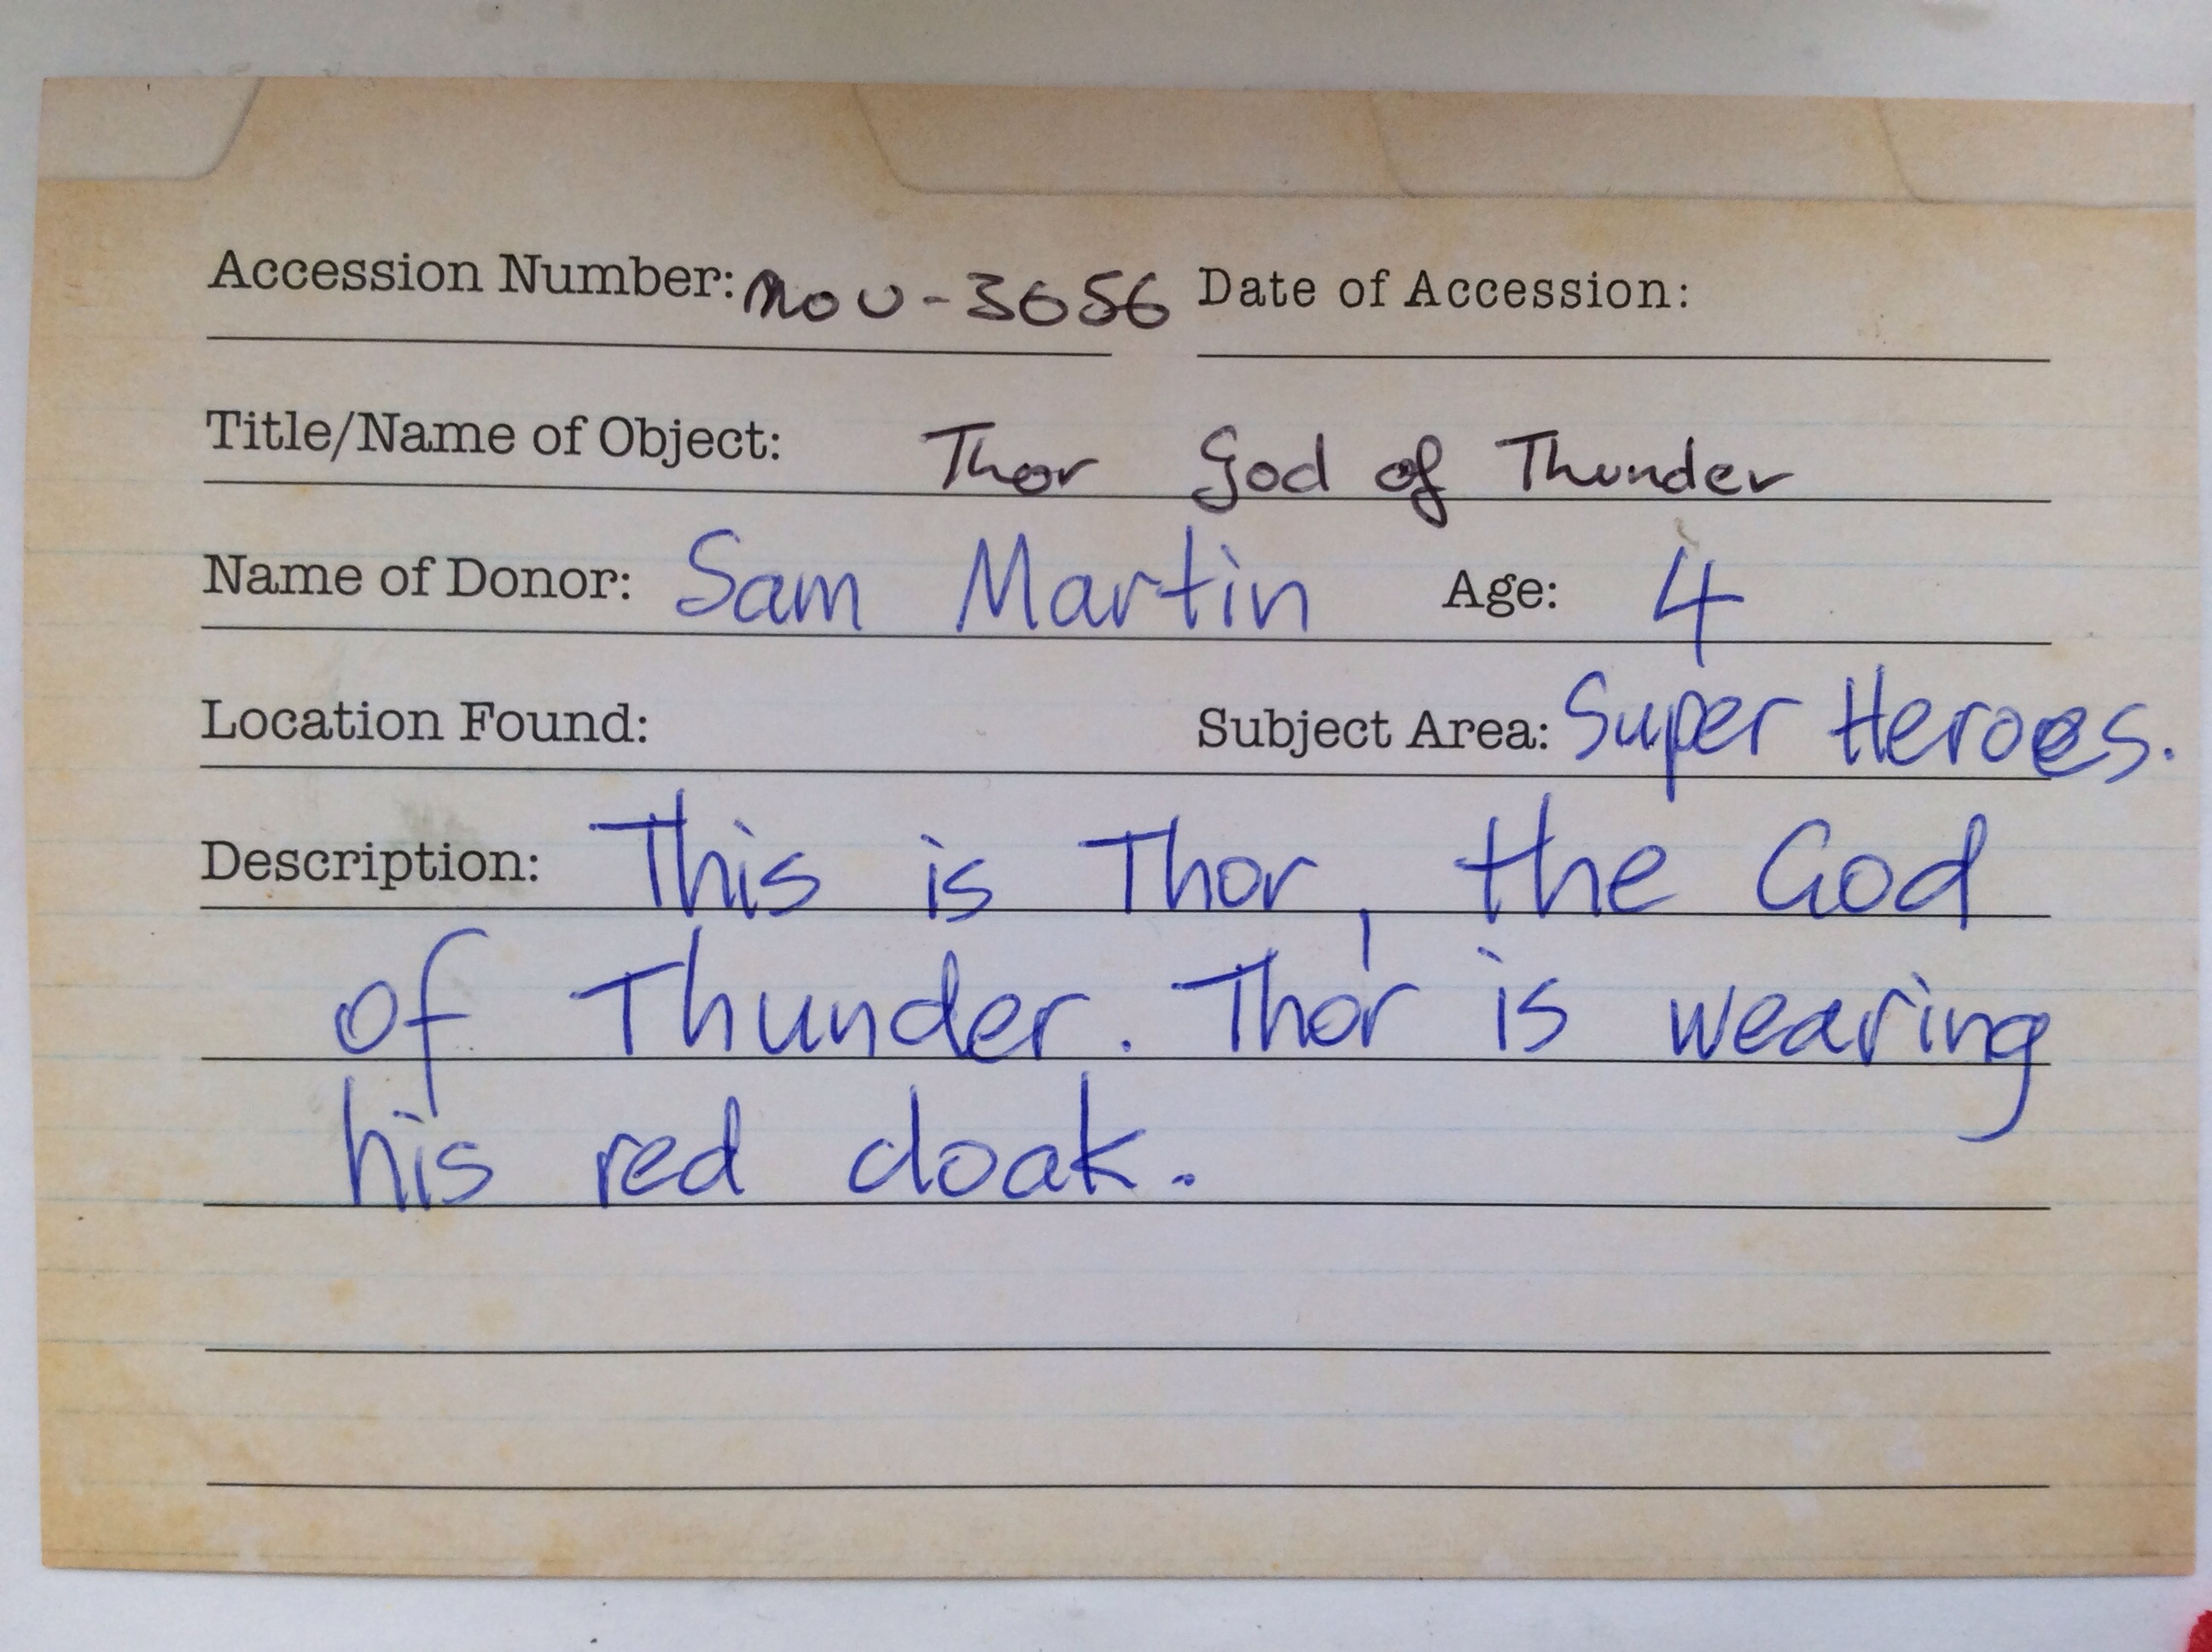 Accession Number: MOU-3656 Date of Accession:
Title/Name of Object: Thor God of Thunder
Name of Donor: Sam Martin Age: 4
Location Found: Subject Area: Super Heroes.
Description: This is Thor, the God
of Thunder. Thor is wearing
his red cloak.